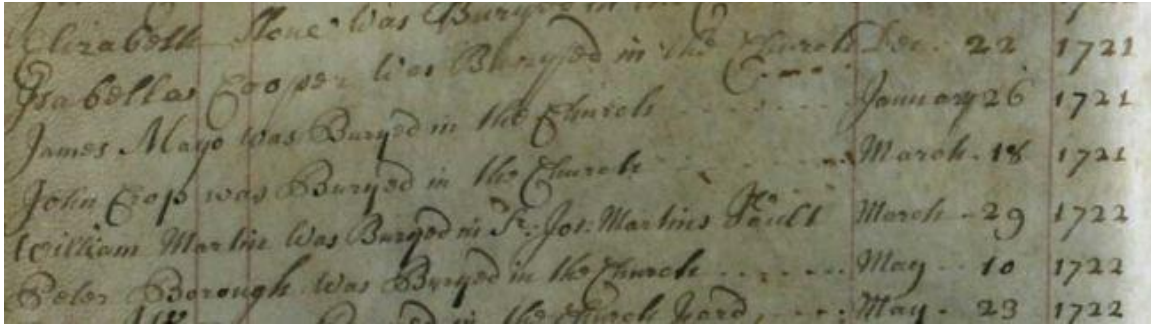 Elizabeth Stone was Buryed in the
Isabella Cooper was Buryed in the Church Dec. 22 1721
James Mayo was Buryed in the Church January 26 1721
John Crop was Buryed in the Church March 18 1721
William Martin was Buryed in Sr. Jos: Martins Vault March 29 1722
Peter Borough was Buryed in the Church May 10 1722
in the Church Yard May 23 1722